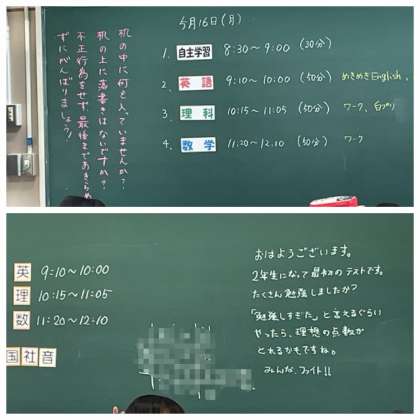 今月16日(月)
1. 自主学習 8:30～9:00 (30分)
2. 英語 9:10～10:00 (50分) めきめきEnglish、
3. 理科 10:15～11:05 (50分) ワーク、自プリ
4. 数学 11:20～12:10 (50分) ワーク
机の中に何も入っていませんか?
机の上に落書きはないですか?
不正行為をせず、最後まであきらめ
ずにがんばりましょう!
英 9:10～10:00
理 10:15～11:05
数 11:20～12:10
国社音
おはようございます。
2年生になって最初のテストです。
たくさん勉強しましたか?
「勉強しすぎた」と言えるぐらい
やったら、理想の点数が
とれるかもですね。
みんな、ファイト!!